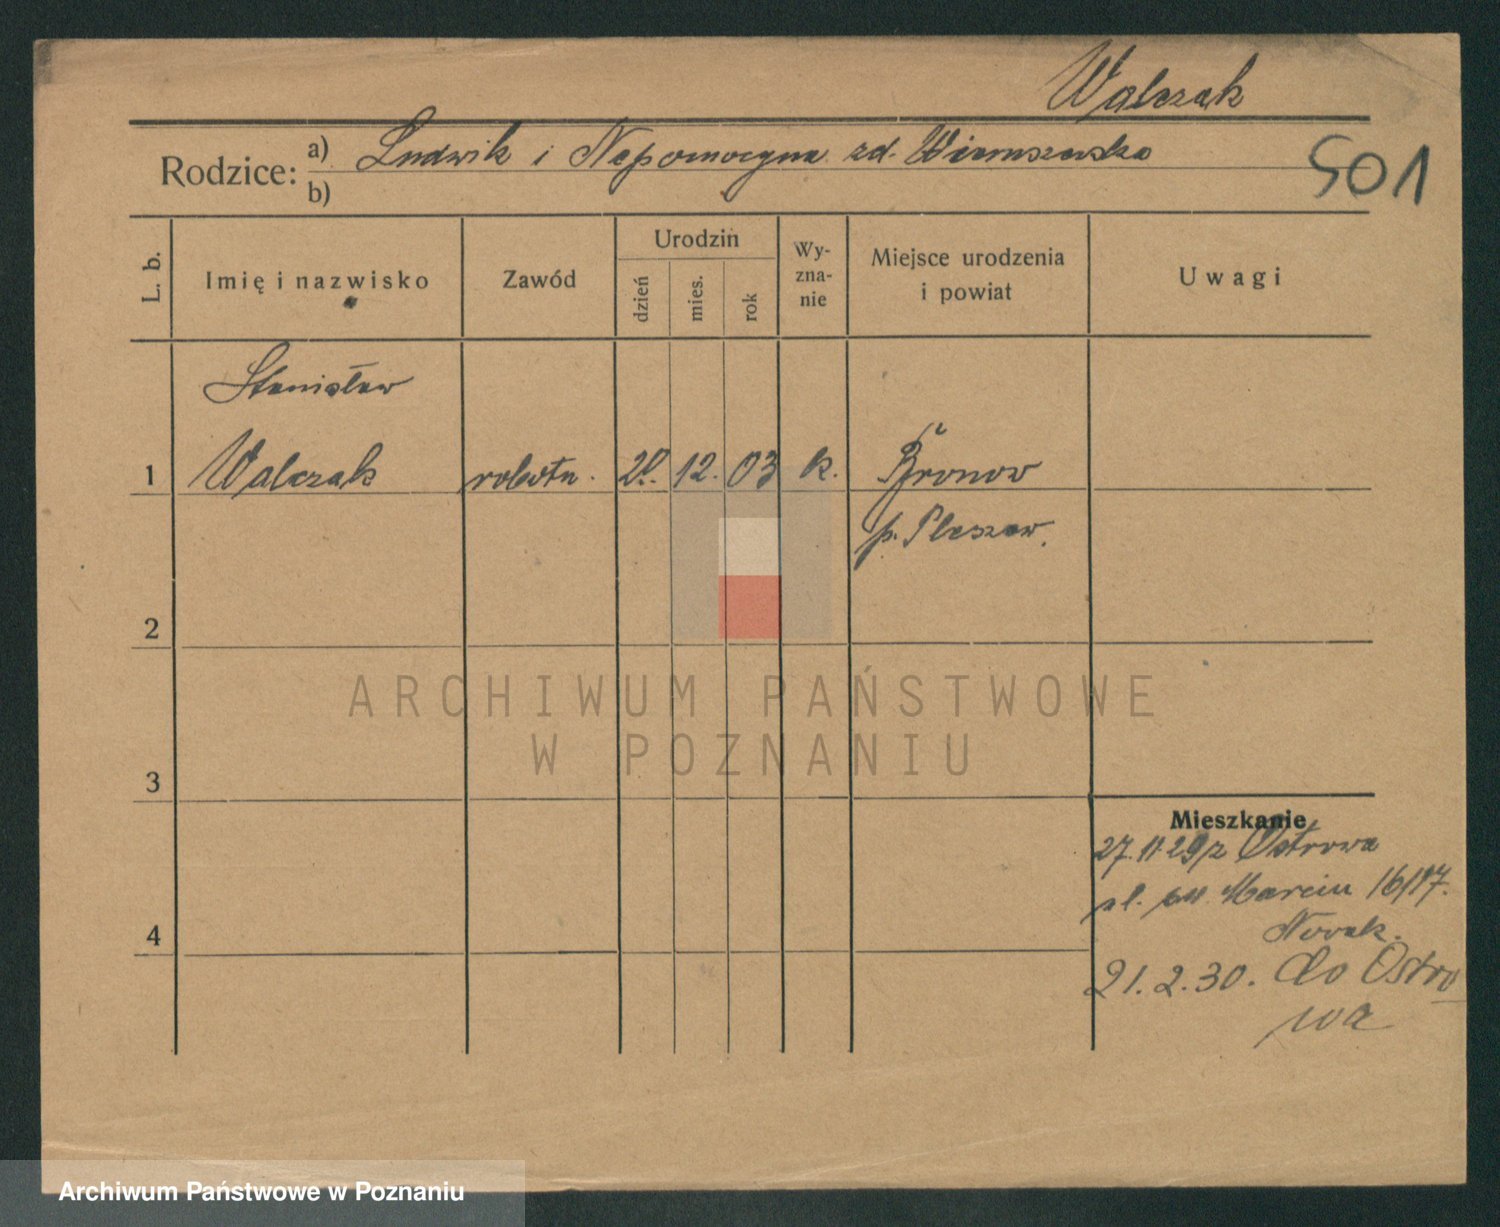 Walczak
Rodzice: a) Ludwik i Nepomocyna zd. Wieruszewska
b)
501
L. b.
Imię i nazwisko
Zawód
Urodzin
dzień
mies.
rok
Wy-
zna-
nie
Miejsce urodzenia
i powiat
Uwagi
Stanisław
1 Walczak robotn. 12. 03 k. Bronow
p. Pleszew.
2
ARCHIWUM PAŃSTWOWE
W POZNANIU
3
Mieszkanie
27.11 29 z Ostrowa
ul. św. Marcin 16/17.
Nowak.
4
21.2.30. do Ostro
wa
Archiwum Państwowe w Poznaniu